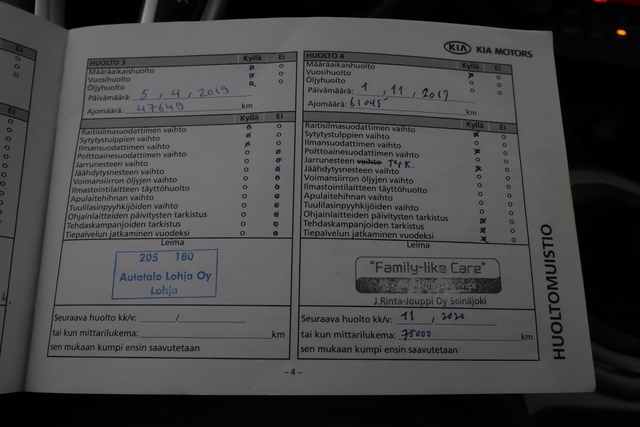 KIA KIA MOTORS
HUOLTO 3 Kyllä Ei
Määräaikaishuolto
Vuosihuolto
Öljyhuolto
Päivämäärä: 5, 4, 2019
Ajomäärä: 47649 km
Kyllä Ei
Raitisilmasuodattimen vaihto
Sytytystulppien vaihto
Ilmansuodattimen vaihto
Polttoainesuodattimen vaihto
Jarrunesteen vaihto
Jäähdytysnesteen vaihto
Voimansiirron öljyjen vaihto
Ilmastointilaitteen täyttöhuolto
Apulaitehihnan vaihto
Tuulilasinpyyhkijöiden vaihto
Ohjainlaitteiden päivitysten tarkistus
Tehdaskampanjoiden tarkistus
Tiepalvelun jatkaminen vuodeksi
Leima
205 180
Autotalo Lohja Oy
Lohja
Seuraava huolto kk/v: /
tai kun mittarilukema: km
sen mukaan kumpi ensin saavutetaan
HUOLTO 4 Kyllä Ei
Määräaikaishuolto
Vuosihuolto
Öljyhuolto
Päivämäärä: 1, 11, 2019
Ajomäärä: 61045 km
Kyllä Ei
Raitisilmasuodattimen vaihto
Sytytystulppien vaihto
Ilmansuodattimen vaihto
Polttoainesuodattimen vaihto
Jarrunesteen vaihto
Jäähdytysnesteen vaihto
Voimansiirron öljyjen vaihto
Ilmastointilaitteen täyttöhuolto
Apulaitehihnan vaihto
Tuulilasinpyyhkijöiden vaihto
Ohjainlaitteiden päivitysten tarkistus
Tehdaskampanjoiden tarkistus
Tiepalvelun jatkaminen vuodeksi
Leima
"Family-like Care"
SERVICE
J.Rinta-Jouppi Oy Seinäjoki
Seuraava huolto kk/v: 11, 2020
tai kun mittarilukema: 75000 km
sen mukaan kumpi ensin saavutetaan
HUOLTOMUISTIO
-4-